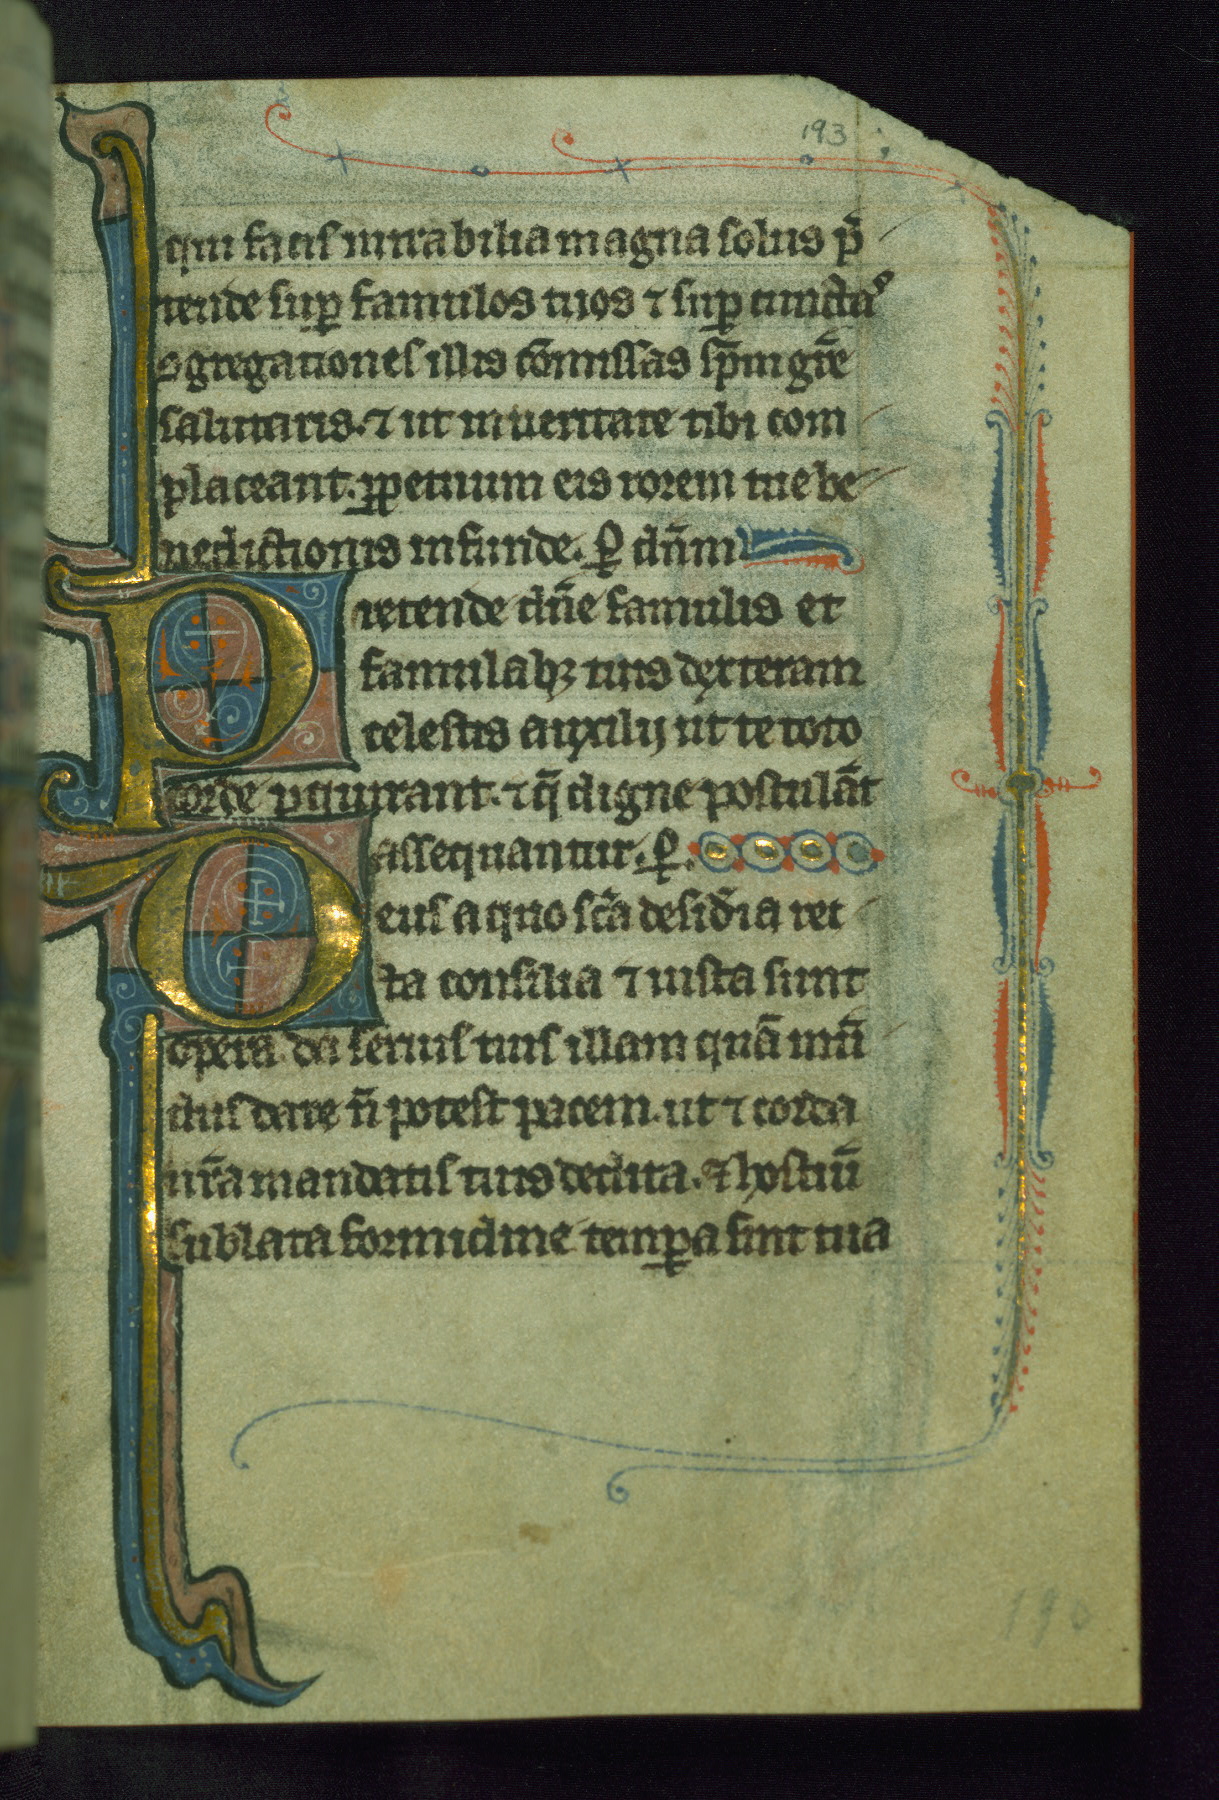 193
qui facis mirabilia magna solus p̄
tende sup famulos tuos ⁊ sup cunctas
ꝯgregationes illis cōmissas sp̄m gr̄e
salutaris. ⁊ ut in ueritate tibi com
placeant. ꝑpetuum eis rorem tue be
nedictionis infunde. ꝑ dn̄m
Pretende dn̄e famulis et
famulabꝫ tuis dexteram
celestis auxilij ut te toto
corde ꝑquirant. ⁊ q̄ digne postulāt
assequantur. ꝑ.
Deus a quo sc̄a desid̄ia rec
ta consilia ⁊ iusta sunt
opera. da seruis tuis illam quā mū
dus dare n̄ potest pacem. ut ⁊ corda
nr̄a mandatis tuis dedita. ⁊ hostiū
sublata formidine tempꝑa sint tua
190